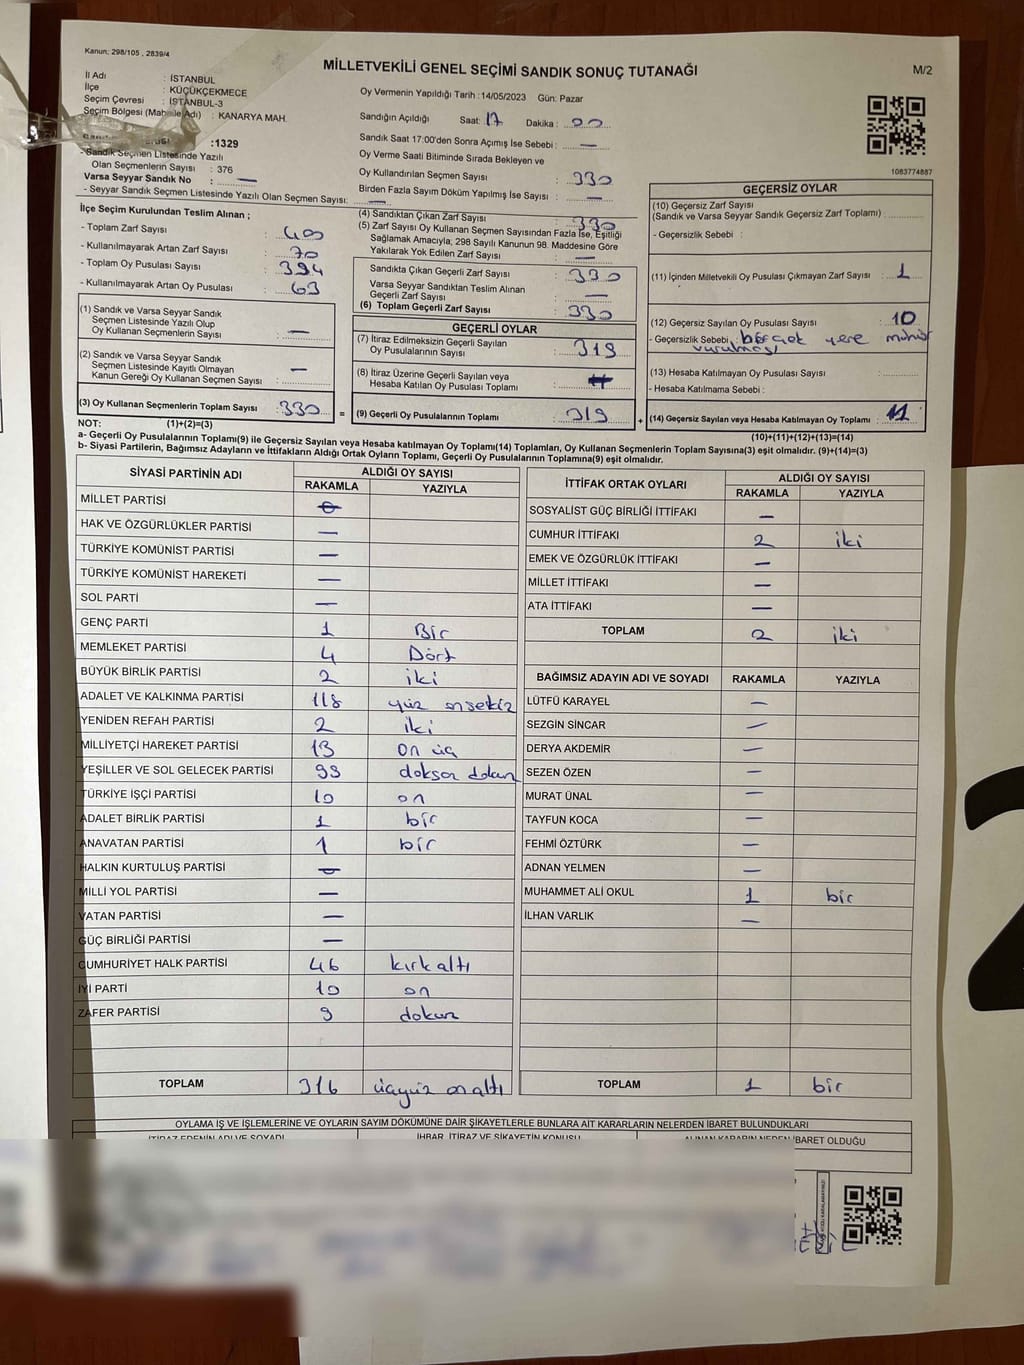 Kanun: 298/105 , 2839/4
MİLLETVEKİLİ GENEL SEÇİMİ SANDIK SONUÇ TUTANAĞI
M/2
İl Adı : İSTANBUL
İlçe : KÜÇÜKÇEKMECE
Seçim Çevresi : İSTANBUL-3
Seçim Bölgesi (Mahalle Adı) : KANARYA MAH.
:1329
- Sandık Seçmen Listesinde Yazılı
Olan Seçmenlerin Sayısı : 376
Varsa Seyyar Sandık No : —
- Seyyar Sandık Seçmen Listesinde Yazılı Olan Seçmen Sayısı: —
Oy Vermenin Yapıldığı Tarih : 14/05/2023 Gün: Pazar
Sandığın Açıldığı Saat: 17 Dakika : 00
Sandık Saat 17:00'den Sonra Açımış İse Sebebi : —
Oy Verme Saati Bitiminde Sırada Bekleyen ve
Oy Kullandırılan Seçmen Sayısı : 330
Birden Fazla Sayım Döküm Yapılmış İse Sayısı : —
1083774887
İlçe Seçim Kurulundan Teslim Alınan ;
- Toplam Zarf Sayısı : 400
- Kullanılmayarak Artan Zarf Sayısı : 70
- Toplam Oy Pusulası Sayısı : 394
- Kullanılmayarak Artan Oy Pusulası : 63
(1) Sandık ve Varsa Seyyar Sandık
Seçmen Listesinde Yazılı Olup
Oy Kullanan Seçmenlerin Sayısı : —
(2) Sandık ve Varsa Seyyar Sandık
Seçmen Listesinde Kayıtlı Olmayan
Kanun Gereği Oy Kullanan Seçmen Sayısı : —
(3) Oy Kullanan Seçmenlerin Toplam Sayısı : 330
(1)+(2)=(3)
(4) Sandıktan Çıkan Zarf Sayısı : 330
(5) Zarf Sayısı Oy Kullanan Seçmen Sayısından Fazla İse, Eşitliği
Sağlamak Amacıyla; 298 Sayılı Kanunun 98. Maddesine Göre
Yakılarak Yok Edilen Zarf Sayısı : —
Sandıkta Çıkan Geçerli Zarf Sayısı : 330
Varsa Seyyar Sandıktan Teslim Alınan
Geçerli Zarf Sayısı : —
(6) Toplam Geçerli Zarf Sayısı : 330
GEÇERLİ OYLAR
(7) İtiraz Edilmeksizin Geçerli Sayılan
Oy Pusulalarının Sayısı : 319
(8) İtiraz Üzerine Geçerli Sayılan veya
Hesaba Katılan Oy Pusulası Toplamı :
= (9) Geçerli Oy Pusulalarının Toplamı : 319
GEÇERSİZ OYLAR
(10) Geçersiz Zarf Sayısı
(Sandık ve Varsa Seyyar Sandık Geçersiz Zarf Toplamı) :
- Geçersizlik Sebebi :
(11) İçinden Milletvekili Oy Pusulası Çıkmayan Zarf Sayısı : 1
(12) Geçersiz Sayılan Oy Pusulası Sayısı : 10
- Geçersizlik Sebebi : birçok yere mühür
vurulması
(13) Hesaba Katılmayan Oy Pusulası Sayısı :
- Hesaba Katılmama Sebebi :
+ (14) Geçersiz Sayılan veya Hesaba Katılmayan Oy Toplamı : 11
(10)+(11)+(12)+(13)=(14)
NOT:
a- Geçerli Oy Pusulalarının Toplamı(9) ile Geçersiz Sayılan veya Hesaba katılmayan Oy Toplamı(14) Toplamları, Oy Kullanan Seçmenlerin Toplam Sayısına(3) eşit olmalıdır. (9)+(14)=(3)
b- Siyasi Partilerin, Bağımsız Adayların ve İttifakların Aldığı Ortak Oyların Toplamı, Geçerli Oy Pusulalarının Toplamına(9) eşit olmalıdır.
SİYASİ PARTİNİN ADI ALDIĞI OY SAYISI
RAKAMLA YAZIYLA
MİLLET PARTİSİ
HAK VE ÖZGÜRLÜKLER PARTİSİ —
TÜRKİYE KOMÜNİST PARTİSİ —
TÜRKİYE KOMÜNİST HAREKETİ —
SOL PARTİ —
GENÇ PARTİ 1 Bir
MEMLEKET PARTİSİ 4 Dört
BÜYÜK BİRLİK PARTİSİ 2 iki
ADALET VE KALKINMA PARTİSİ 118 yüz onsekiz
YENİDEN REFAH PARTİSİ 2 iki
MİLLİYETÇİ HAREKET PARTİSİ 13 on üç
YEŞİLLER VE SOL GELECEK PARTİSİ 99 doksan dokuz
TÜRKİYE İŞÇİ PARTİSİ 10 on
ADALET BİRLİK PARTİSİ 1 bir
ANAVATAN PARTİSİ 1 bir
HALKIN KURTULUŞ PARTİSİ —
MİLLİ YOL PARTİSİ —
VATAN PARTİSİ —
GÜÇ BİRLİĞİ PARTİSİ —
CUMHURİYET HALK PARTİSİ 46 kırkaltı
İYİ PARTİ 10 on
ZAFER PARTİSİ 9 dokuz
TOPLAM 316 üçyüz onaltı
İTTİFAK ORTAK OYLARI ALDIĞI OY SAYISI
RAKAMLA YAZIYLA
SOSYALİST GÜÇ BİRLİĞİ İTTİFAKI —
CUMHUR İTTİFAKI 2 iki
EMEK VE ÖZGÜRLÜK İTTİFAKI —
MİLLET İTTİFAKI —
ATA İTTİFAKI —
TOPLAM 2 iki
BAĞIMSIZ ADAYIN ADI VE SOYADI RAKAMLA YAZIYLA
LÜTFÜ KARAYEL —
SEZGİN SİNCAR —
DERYA AKDEMİR —
SEZEN ÖZEN —
MURAT ÜNAL —
TAYFUN KOCA —
FEHMİ ÖZTÜRK —
ADNAN YELMEN —
MUHAMMET ALİ OKUL 1 bir
İLHAN VARLIK —
TOPLAM 1 bir
OYLAMA İŞ VE İŞLEMLERİNE VE OYLARIN SAYIM DÖKÜMÜNE DAİR ŞİKAYETLERLE BUNLARA AİT KARARLARIN NELERDEN İBARET BULUNDUKLARI
İTİRAZ EDENİN ADI VE SOYADI İHBAR, İTİRAZ VE ŞİKAYETİN KONUSU ALINAN KARARIN NEDEN İBARET OLDUĞU
2